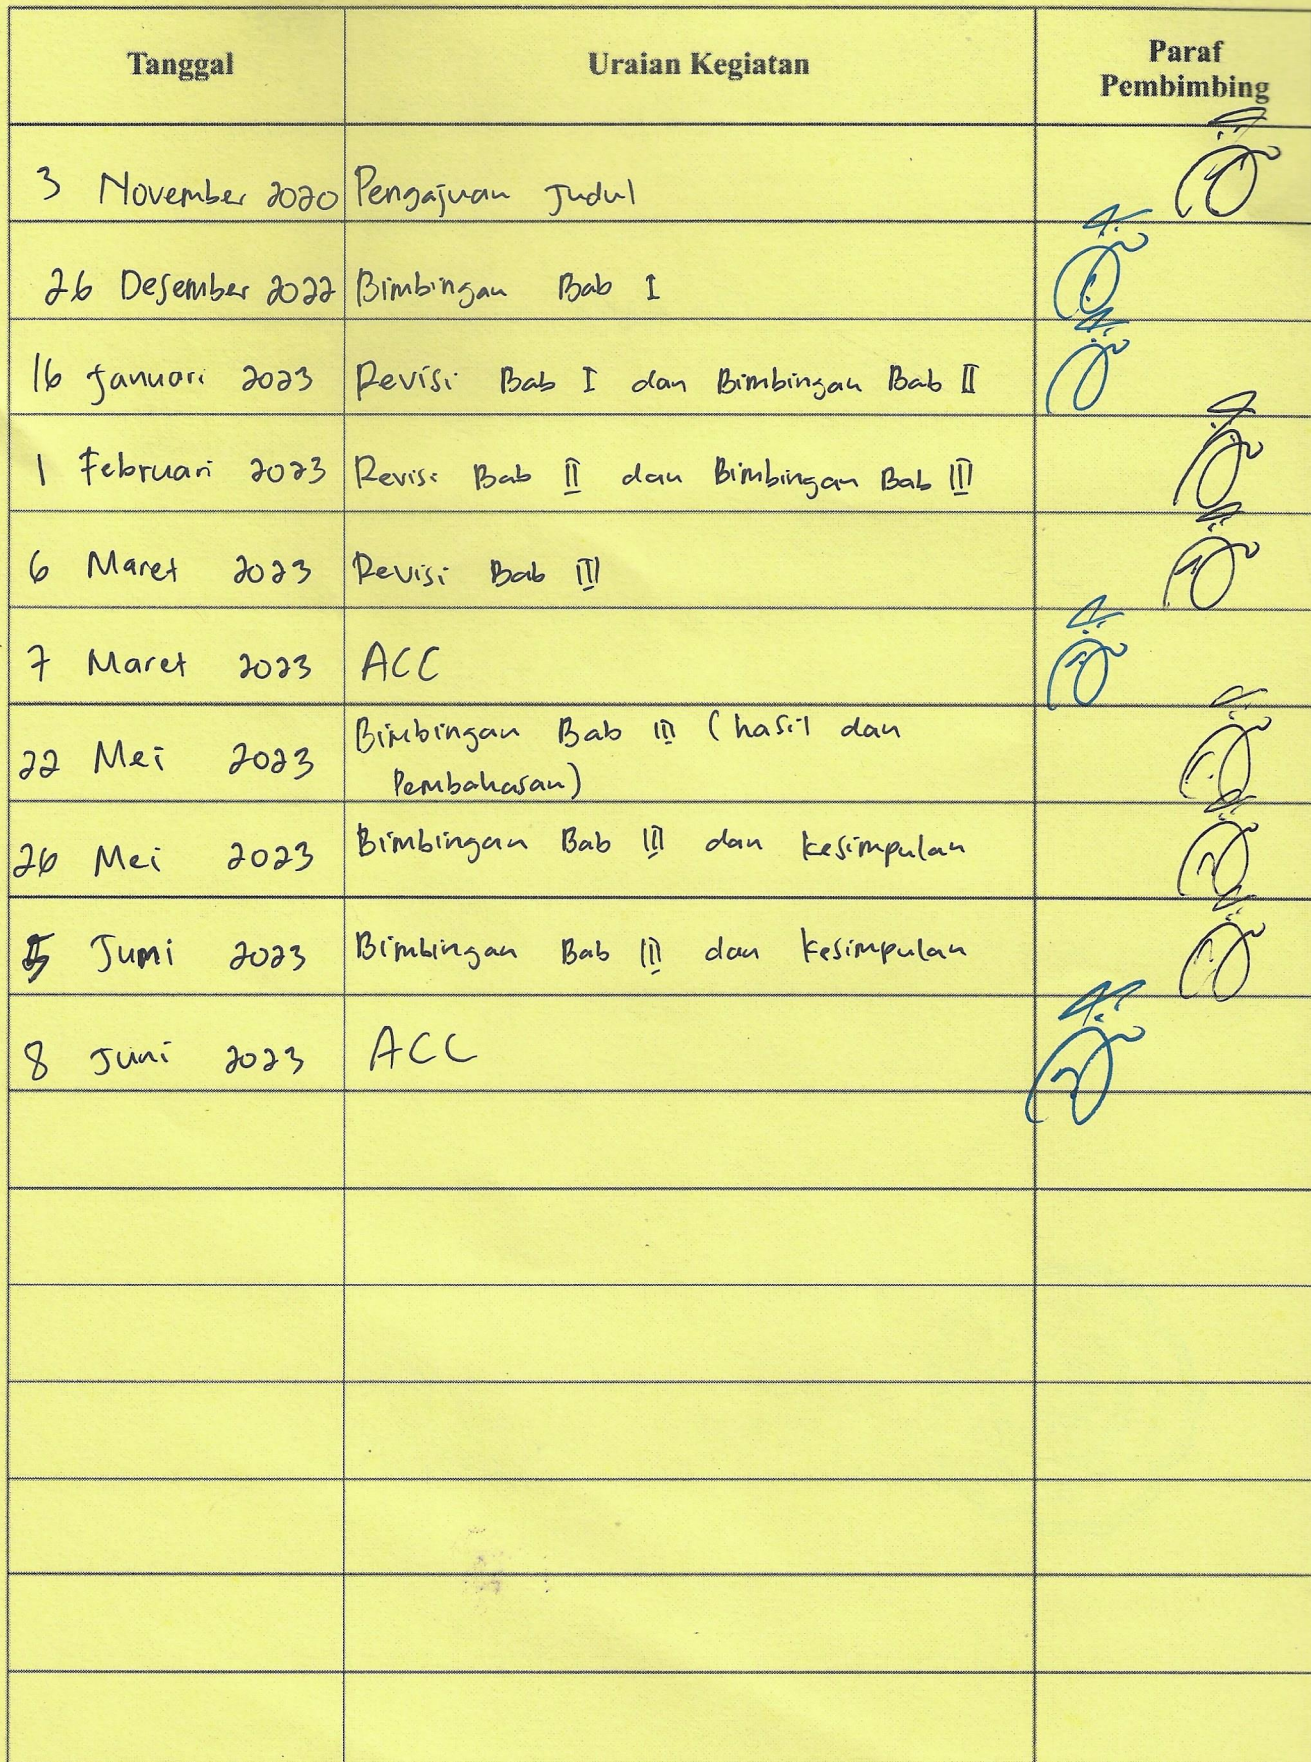 Tanggal Uraian Kegiatan Paraf
Pembimbing
3 November 2020 Pengajuan Judul
26 Desember 2022 Bimbingan Bab I
16 Januari 2023 Revisi Bab I dan Bimbingan Bab II
1 Februari 2023 Revisi Bab II dan Bimbingan Bab III
6 Maret 2023 Revisi Bab III
7 Maret 2023 ACC
22 Mei 2023 Bimbingan Bab III (hasil dan
Pembahasan)
26 Mei 2023 Bimbingan Bab III dan kesimpulan
5 Juni 2023 Bimbingan Bab III dan kesimpulan
8 Juni 2023 ACC